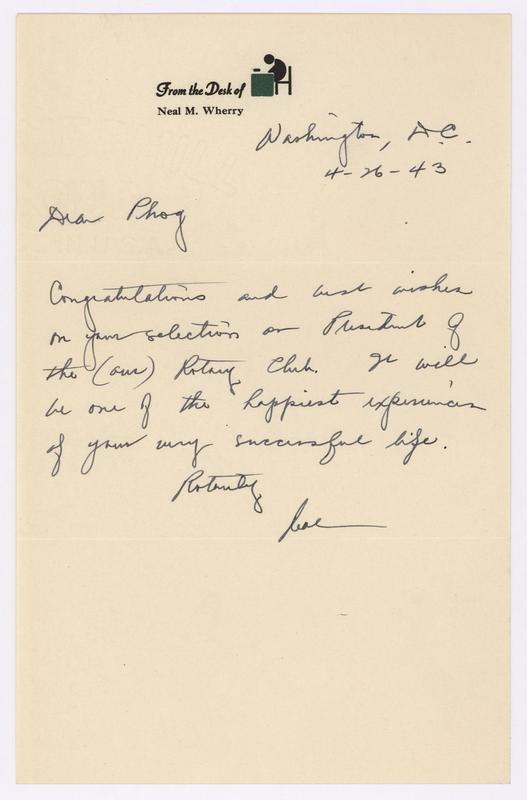 From the Desk of
Neal M. Wherry
Washington, D.C.
4-26-43
Dear Phog
Congratulations and best wishes
on your selection as President of
the (our) Rotary Club. It will
be one of the happiest experiences
of your very successful life.